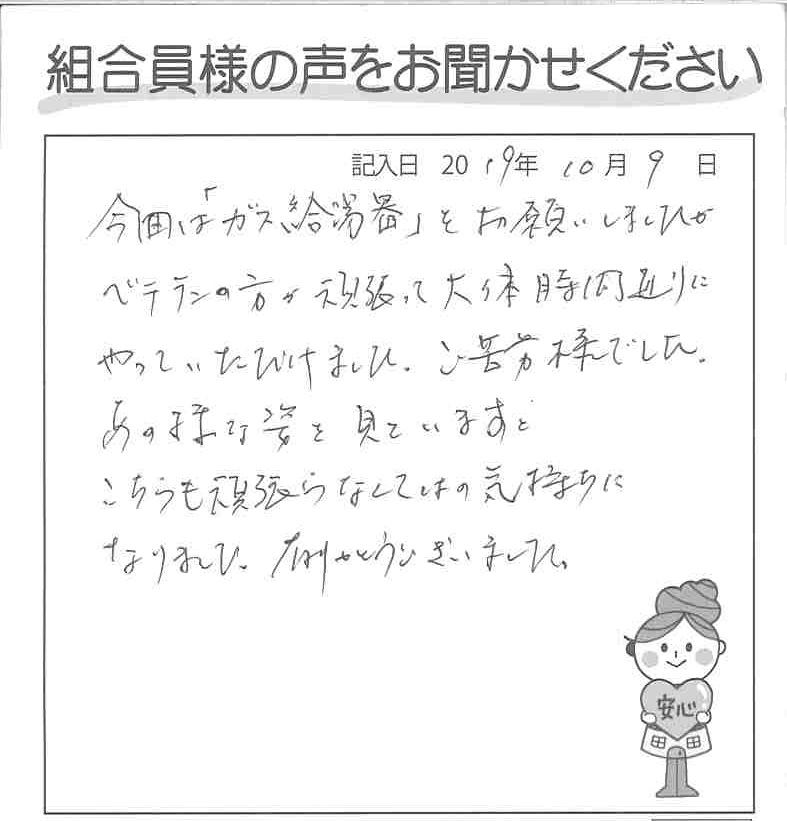 組合員様の声をお聞かせください
記入日 2019年 10月 9 日
今回は「ガス給湯器」をお願いしましたが
ベテランの方が頑張って大体時間通りに
やっていただけました。ご苦労様でした。
あの様な姿を見ていますと
こちらも頑張らなくてはの気持ちに
なりました。有りがとうございました。
安心